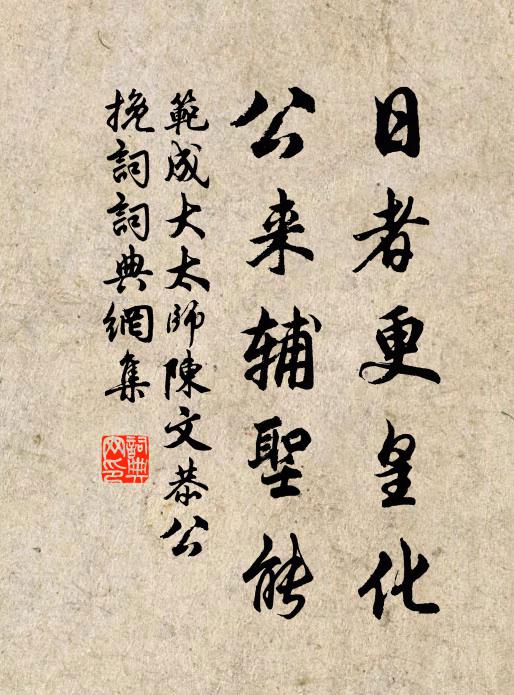 日者更皇化
公来辅聖能
範成大太師陳文恭公
挽詞詞典網集
詞典网印